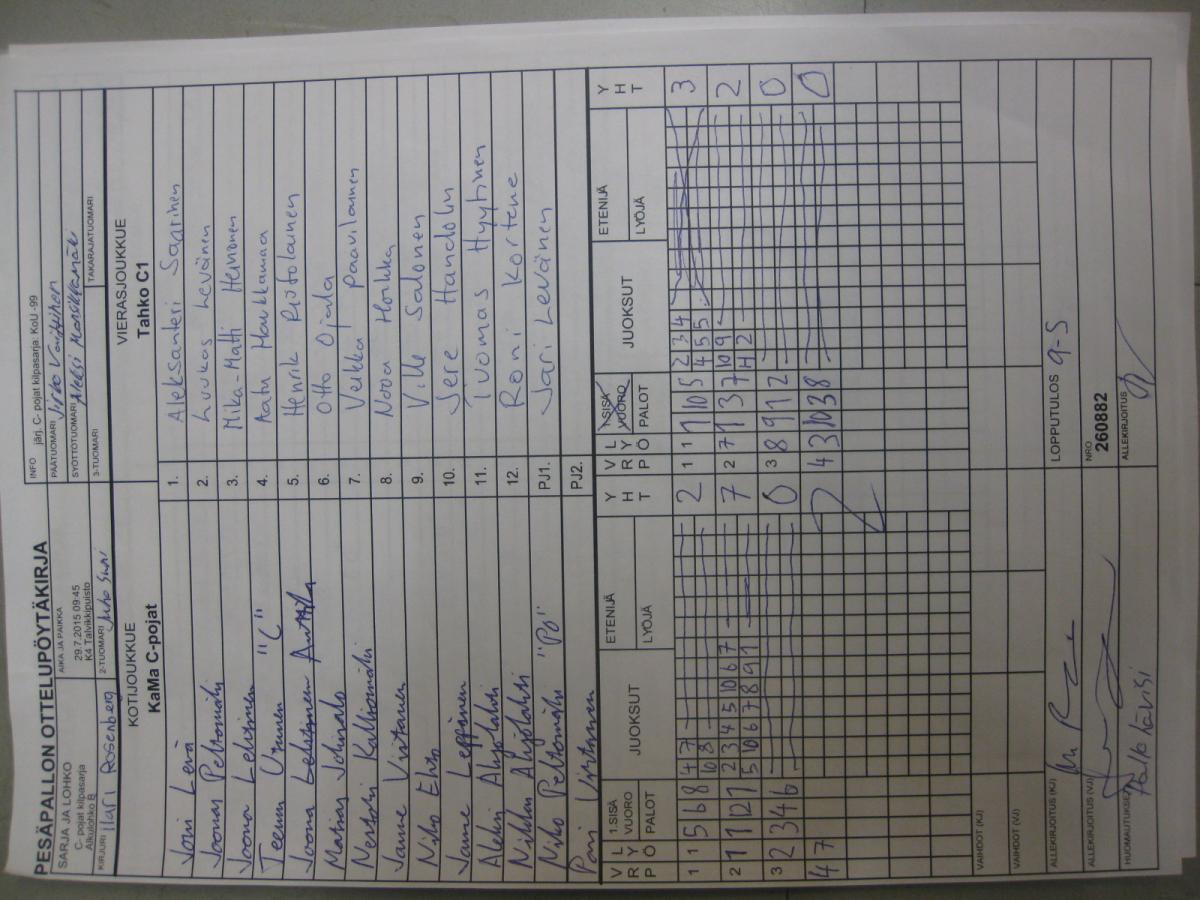 PESÄPALLON OTTELUPÖYTÄKIRJA
SARJA JA LOHKO
C- pojat kilpasarja
Alkulohko B
AIKA JA PAIKKA
29.7.2015 09:45
K4 Talvikkipuisto
INFO järj. C- pojat kilpasarja: KoU -99
PÄÄTUOMARI
SYÖTTÖTUOMARI Aleksi
KIRJURI Ilari Rosenberg
2-TUOMARI Juho Suni
3-TUOMARI
TAKARAJATUOMARI
KOTIJOUKKUE
KaMa C-pojat
VIERASJOUKKUE
Tahko C1
Joni Levä
1. Aleksanteri Saarinen
Joonas Peltomäki
2. Luukas Leväinen
Joona Lehtinen
3. Mika-Matti Heinonen
Teemu "C"
4. Aatu Haukkamaa
Joona Anttila
5. Henrik
Matias
6. Otto Ojala
7. Veikka Paavilainen
Janne Virtanen
8. Nooa Horkka
Niko
9. Ville Salonen
Janne Leppänen
10. Jere Handolin
Aleksi Ahjolahti
11. Tuomas Hyytinen
Niklas Ahjolahti
12. Roni Kortene
Niko Peltomäki "PJ"
PJ1. Jari Levänen
Pasi Virtanen
PJ2.
VRP LYÖ 1.SISÄ VUORO PALOT JUOKSUT ETENIJÄ LYÖJÄ YHT
VRP LYÖ 1.SISÄ VUORO PALOT JUOKSUT ETENIJÄ LYÖJÄ YHT
1 1 5 6 8 4 7 2
10 8
1 1 1 10 5 2 3 4 3
4 5 5
2 1 1 12 1 2 3 4 5 10 6 7 7
5 10 6 7 8 9 1
2 7 1 3 7 10 9 2
H 2
3 2 3 4 6 0
3 8 9 11 2 0
4 7
4 3 10 3 8 0
VAIHDOT (KJ)
VAIHDOT (VJ)
ALLEKIRJOITUS (KJ)
LOPPUTULOS 9-5
ALLEKIRJOITUS (VJ)
NRO
260882
HUOMAUTUKSET
ALLEKIRJOITUS